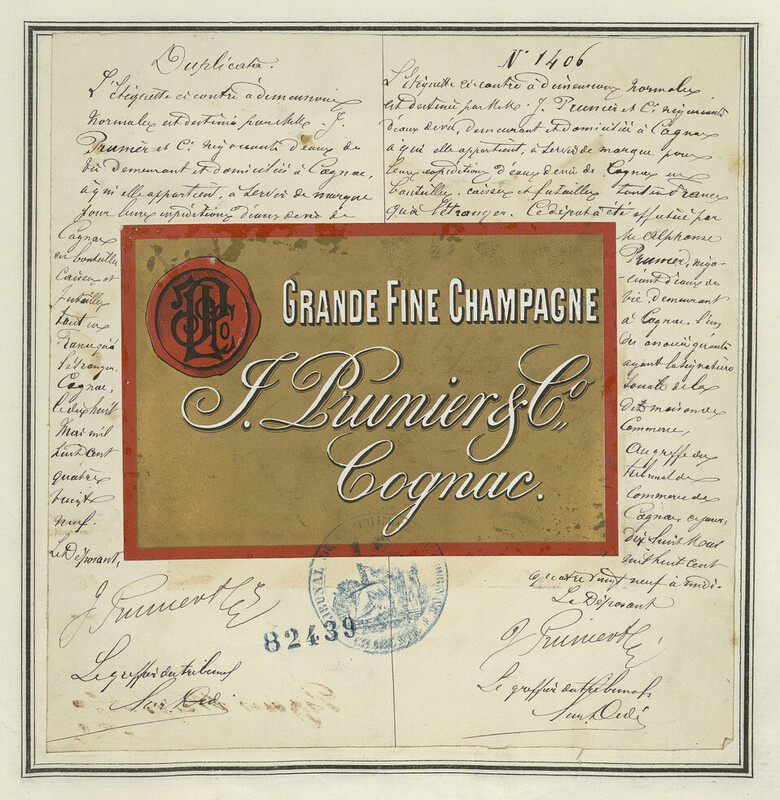 Duplicata.
L'étiquette ci contre à dimensions
normales est destinée par M.M. J.
Prunier et Cie négociants d'eaux de
vie demeurant et domiciliés à Cognac,
à qui elle appartient, à servir de marque
pour leurs expéditions d'eaux de vie de
Cognac
en bouteilles
Caisses et
futailles
tant en
France qu'à
l'étranger.
Cognac,
le dix huit
Mai mil
huit cent
quatre
vingt
neuf.
Le Déposant,
J. Prunier & Cie
Le greffier du tribunal
N° 1406
L'étiquette ci contre à dimensions normales
est destinée par M.M. J. Prunier et Cie négociants
d'eaux de vie, demeurant et domiciliés à Cognac
à qui elle appartient, à servir de marque pour
leurs expéditions d'eaux de vie de Cognac en
bouteilles, caisses et futailles tant en France
qu'à l'étranger. Ce dépôt a été effectué par
M. Alphonse
Prunier, négo-
ciant d'eaux de
vie, demeurant
à Cognac, l'un
des associés gérants
ayant la signature
sociale de la
dite maison de
Commerce,
Au greffe du
tribunal de
Commerce de
Cognac ce jour,
dix huit Mai
mil huit cent
quatre vingt neuf à midi.
Le Déposant
J. Prunier & Cie
Le greffier du tribunal
GRANDE FINE CHAMPAGNE
J. Prunier & Co.,
Cognac.
JP & Co
TRIBUNAL DE COMMERCE
82439